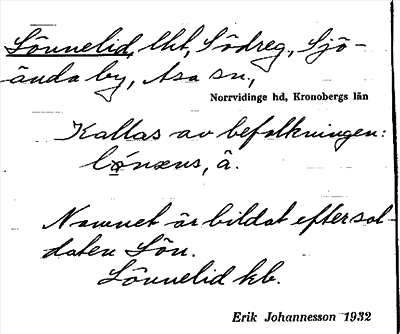 Lönnelid, lht, Södreg, Sjö-
ända by, Asa sn.,
Norrvidinge hd, Kronobergs län
Kallas av befolkningen:
lønæns, â.
Namnet är bildat efter sol-
daten Lön.
Lönnelid kb.
Erik Johannesson 1932